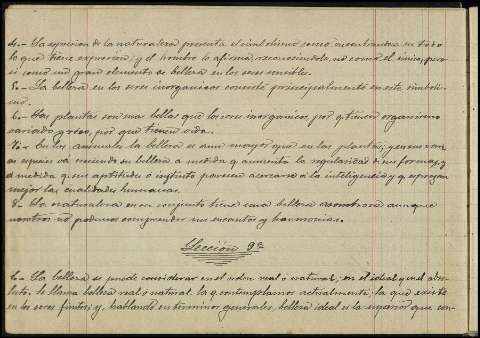 4.- La expresion de la naturaleza presenta el simbolismo como encontrandose en todo
lo que tiene expresion, y el hombre lo afirma reconociéndolo, no como el único, pero
si como un gran elemento de belleza en los seres sensibles.
5.- La belleza en los seres inorganicos consiste principalmente en este simbolis-
mo.
6.- Las plantas son mas bellas que los seres inorganicos, por q. tienen organismo
variado y rico, por que tienen vida.
7.- En los animales la belleza es aun mayor que en las plantas; y en sus varias
especies va creciendo su belleza a medida q. aumenta la regularidad de sus formas, y
á medida q. sus aptitudes o instinto parecen acercarse á la inteligencia y q. expresan
mejor las cualidades humanas.
8.- La naturaleza en su conjunto tiene una belleza asombrosa aunque
nosotros no podemos comprender sus encantos y harmonias.
Leccion 9ª
1.- La belleza se puede considerar en el orden real o natural, en el ideal y en el abso-
luto. Se llama belleza real o natural la q. contemplamos actualmente, la que existe
en los seres finitos; y, hablando en terminos generales, belleza ideal es la superior que con-